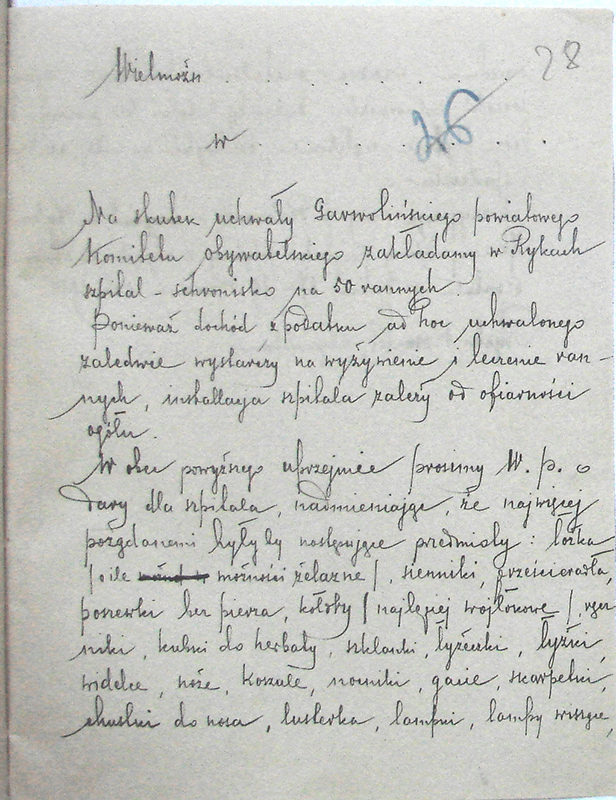 28
Wielmożn . . . . .
26
w . .
Na skutek uchwały Garwolińskiego powiatowego
Komitetu obywatelskiego zakładamy w Rykach
szpital - schronisko na 50 rannych.
Ponieważ dochód z podatku, ad hoc uchwalonego
zaledwie wystarczy na wyżywienie i leczenie ran-
nych, installacja szpitala zależy od ofiarności
ogółu.
W obec powyższego uprzejmie prosimy W. p. o
dary dla szpitala, nadmieniając, że najwięcej
pożądanemi byłyby następujące przedmioty: łóżka
/ o ile możności żelazne /, sienniki, prześcieradła
poszewki bez pierza, kołdry / najlepiej wojłokowe /, ręcz-
niki, kubki do herbaty, szklanki, łyżeczki, łyżki
widelce, noże, koszule, nocniki, gacie, skarpetki,
chustki do nosa, lusterka, lampki, lampy wiszące,